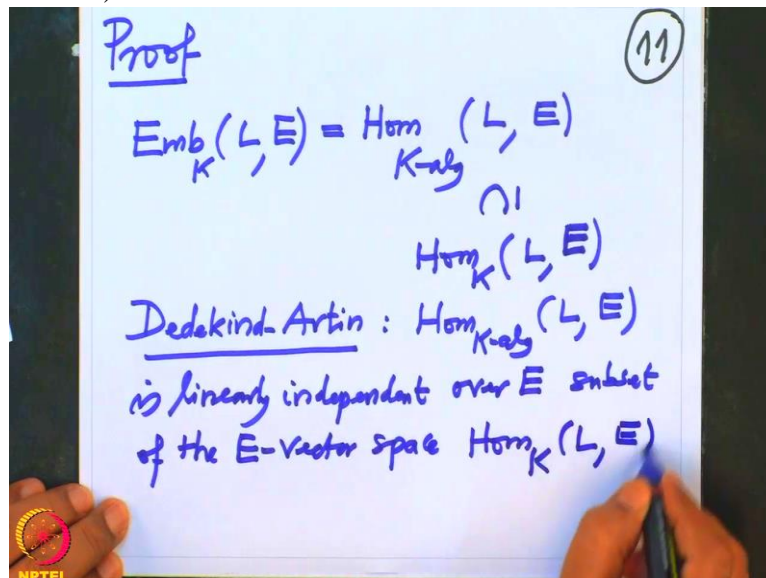 Proof
11
Emb_K (L, E) = Hom_{K-alg} (L, E)
∩|
Hom_K (L, E)
Dedekind-Artin : Hom_{K-alg} (L, E)
is linearly independent over E subset
of the E-vector space Hom_K (L, E)
NPTEL